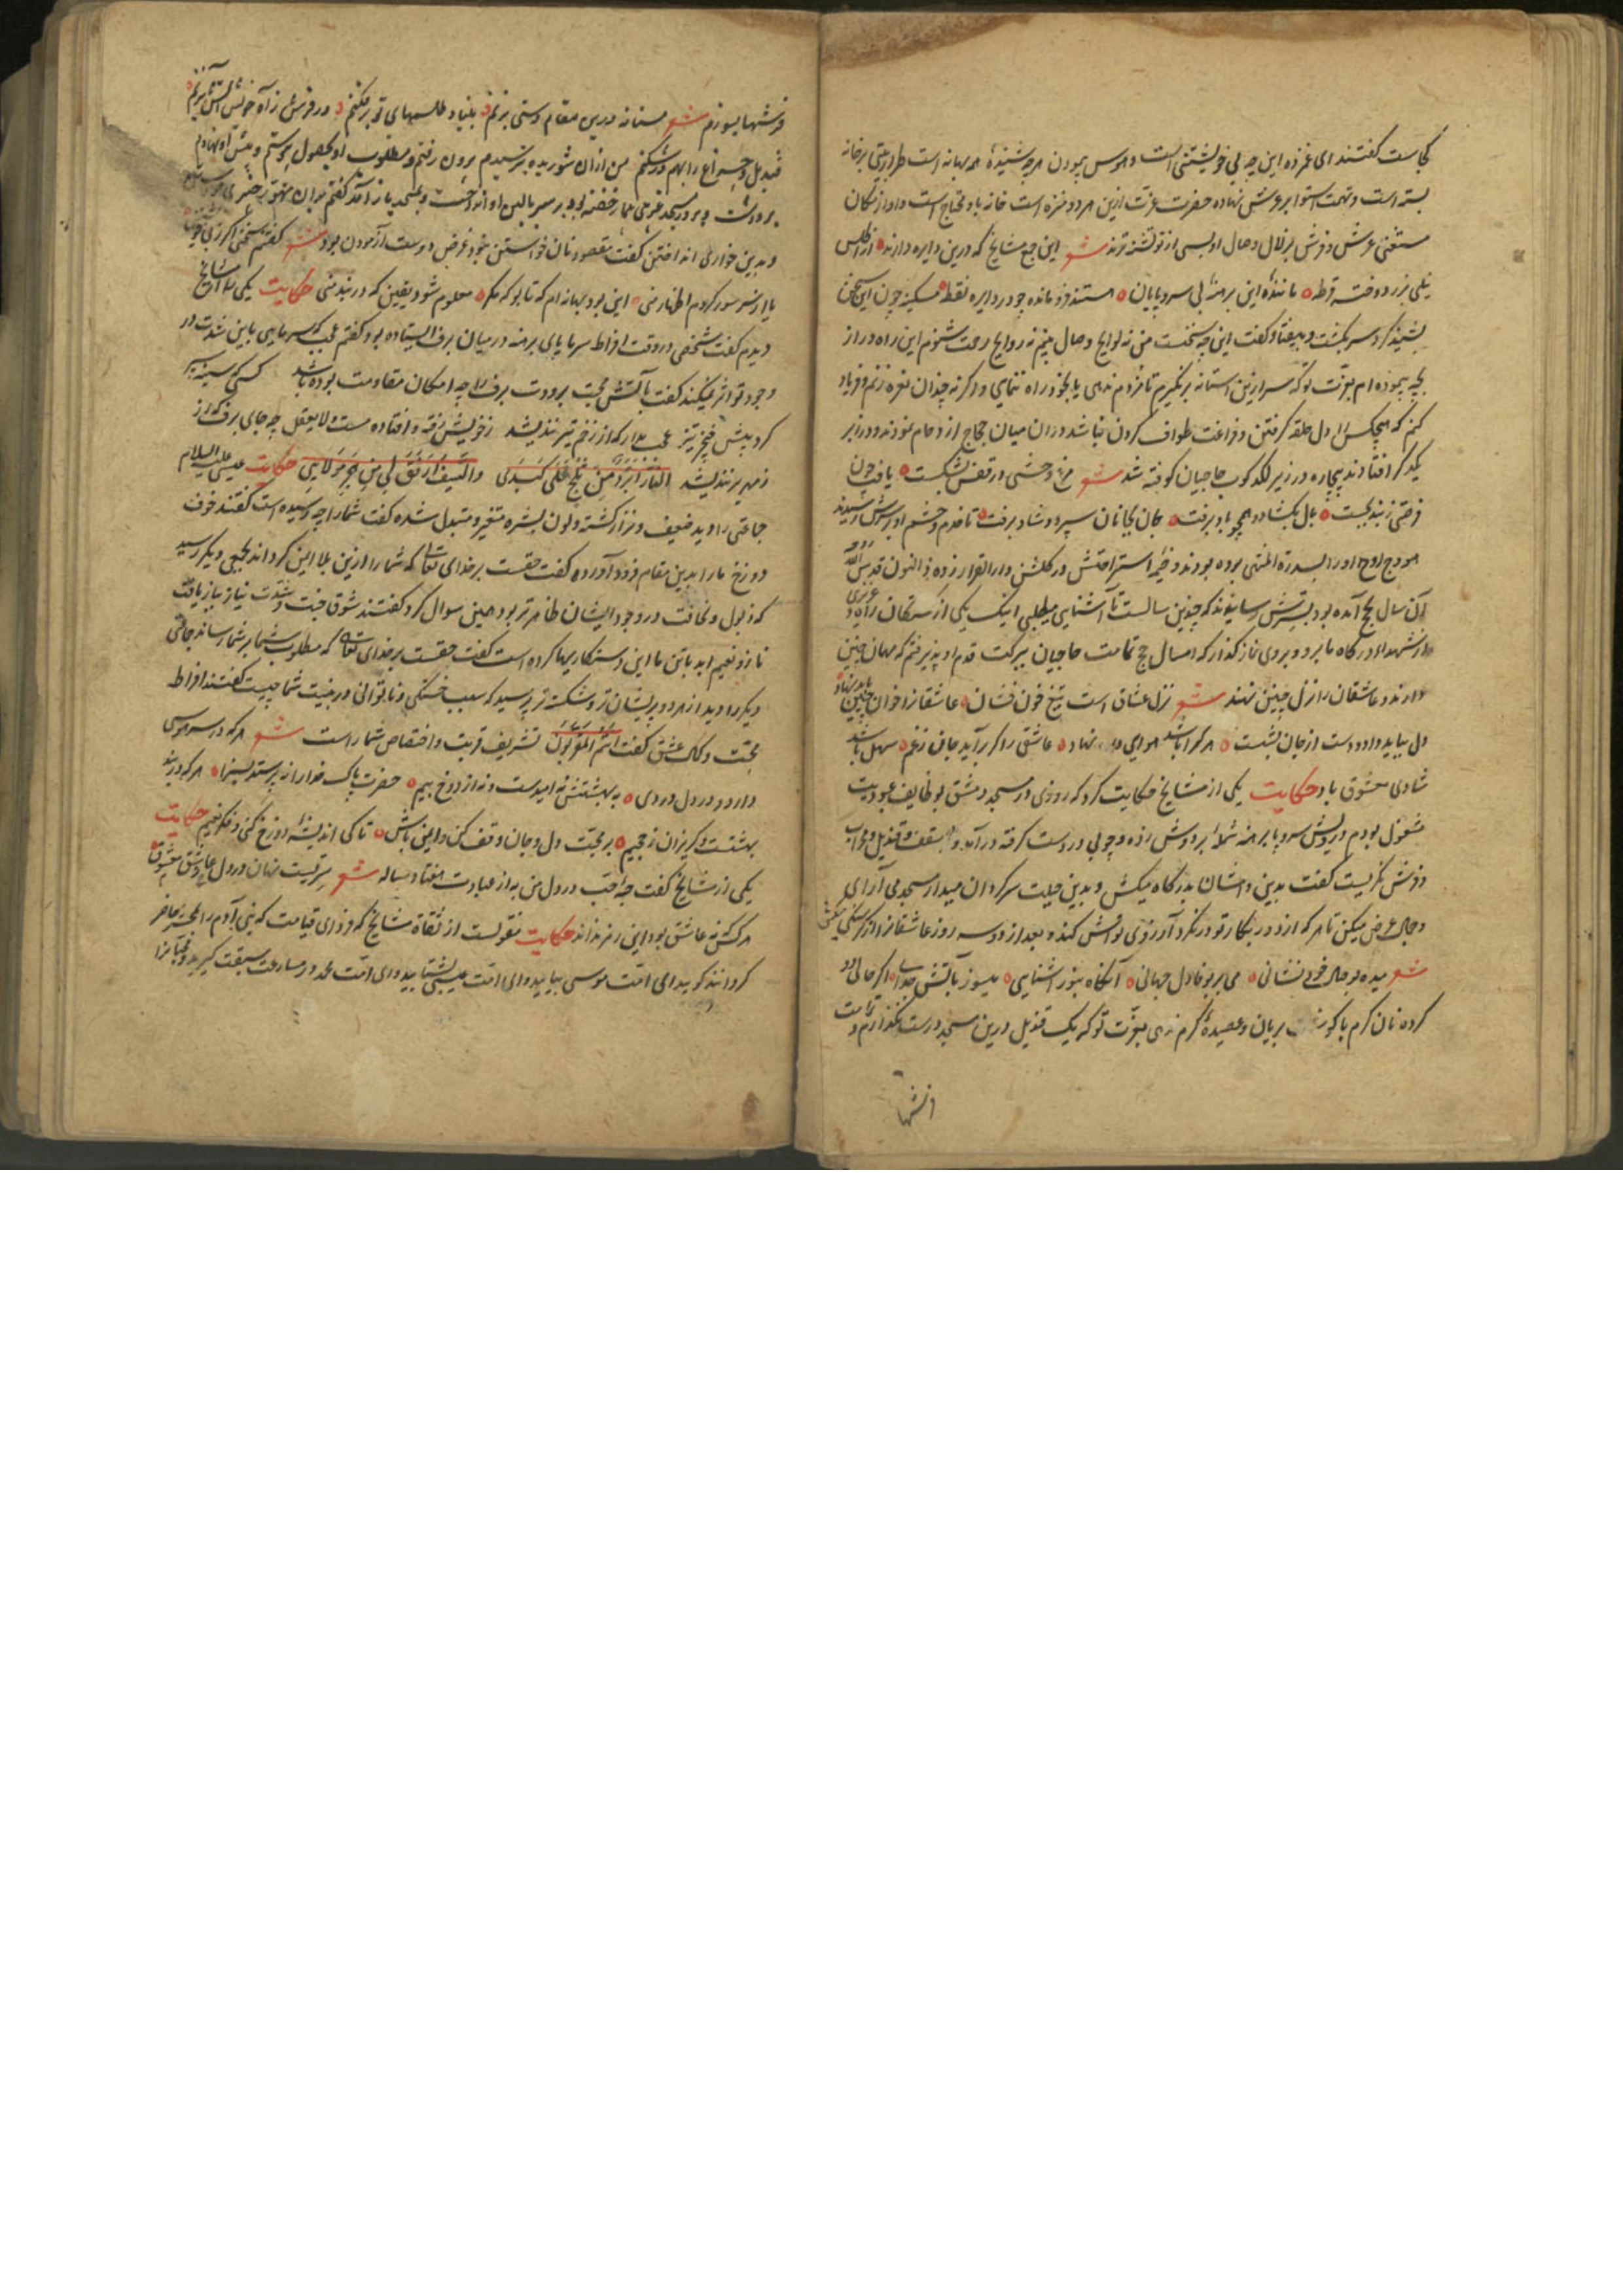 کجاست گفتند ای غمزده این چه بی خویشتنی است و هوس پیمودن هرچه شنیدهٔ همه بهانه است طراز بیتی بر خانه
بسته است و تهمت استوا بر عرش نهاده حضرت عزت ازین هر دو منزه است خانه باو محتاج است و او از مکان
مستغنی عرش و فرش بر زلال وصال او بسی از تو تشنه ترند شعر این جمع مشایخ که درین دایره دارند از اطلس
نیلی بزر دوخته قرطه مانندهٔ این برهنهٔ بی سر و پایان هستند فرومانده چو در دایره نقطه مسکین چون این سخن
بشنید گرد سر بگشت و بیفتاد و گفت این چه سخنست من نه لوایح وصال بینم نه روایح رحمت شنوم این راه دراز
بچه پیموده ام بعزت تو که سر ازین آستانه برنگیرم تا مزدم ندهی یا بخود راه ننمایی و اگرنه چندان نعره زنم و فریاد
کنم که هیچکس را دل حلقه گرفتن و فراغت طواف کردن نباشد در آن میان حجاج ازدحام نمودند و در بر
یکدیگر افتادند بیچاره در زیر لگدکوب حاجیان کوفته شد شعر مرغ وحشی در قفس بشکست یافت چون
فرصتی ز بند بجست بال بگشاد و همچو باد برفت جان بجانان سپرد و شاد برفت تا خدم و حشم او بر سرش رسیدند
هودج روح او را بسدرة المنتهی برده بودند و خیمهٔ استراحتش در گلشن دارالقرار زده ذوالنون قدس الله روحه
آن سال بحج آمده بود بسرش رسانیدند که چندین سالست تا آشنایی میطلبی اینک یکی از کشتگان راه و
از شهدا در گاه ما برو و بر وی نماز گذار که امسال حج تمامت حاجیان ببرکت قدم او پذیرفتم که مهمان چنین
دارند و عاشقان را نزل چنین نهند شعر نزل عشاق است تیغ خون فشان عاشقانرا خوان چنین باید نهاد
دل بباید داد و دست از جان بشست هر کرا باشد هوای نهاد عاشقی را گر برآید جان ز غم سهل باشد
شادی معشوق باد حکایت یکی از مشایخ حکایت کرد که روزی در مسجد دمشق بوظایف عبودیت
مشغول بودم درویش سر و پا برهنه شملهٔ بر دوش زده و چوبی در دست گرفته درآمد و بسقف و قندیل و محراب
و فرش نگریست گفت بدین دامنشان بدرگاه میکشی و بدین حیلت سرگردان میداری مسجد می آرای
و جمال عرض میکنی تا هر که از در بنگار تو درنگرد آرزوی نوازش کند و بعد از دو سه روز عاشقانرا از گرسنگی بکشی
شعر میده بوصال خود نشانی می بر بوفا دل جهانی آنگاه بنور آشنایی میسوز بآتش جدایی اگر حالی دو
کرده نان گرم با بریان و عصیدهٔ گرم ندهی بعزت تو که یک قندیل درین مسجد درست نگذارم و تمامت
فرشها
فرشها بسوزم شعر مستانه درین مقام دستی بزنم بنیاد طلسمهای تو برفکنم در فرش ز آه خویش آتش بزنم
قندیل و چراغ را بهم در شکنم من از آن شوریده برنجیدم برون رفتم و مطلوب او بحصول پیوستم و پیش او نهادم
برداشت و در مسجد بر سر بالین او انداخت و بمسجد باز آمد گفتم
و بدین خواری انداختن گفت مقصود نان خواستن نبود غرض دوست آزمودن بود شعر گفتم سخنی اگر ز بی خویشی
یا از سر سوز کردم اظهار منی این بود بهانه ام که تا بو که مگر معلوم شود یقین که در بند منی حکایت یکی را از مشایخ
دیدم گفت شخصی در وقت افراط سرما پای برهنه در میان برف ایستاده بود گفتم عجب که سرمایی باین شدت در
وجود تو اثر نمیکند گفت با آتش محبت برودت برف را چه امکان مقاومت بوده باشد کسی که سینه سپر
کرد پیش خنجر تیز عجب مدار که از زخم تیر نندیشد ز خویش رفته و افتاده مست و لایعقل چه جای برف که از
زمهریر نندیشد النار ابرد من ثلج علی کبدی والسیف ارفق لی من هجر مولایی حکایت عیسی علیه السلام
جماعتی را دید ضعیف و نزار گشته و لون بشره متغیر و متبدل شده گفت شما را چه رسیده است گفتند خوف
دوزخ ما را بدین مقام فرود آورده گفت حقست بر خدای تعالی که شما را ازین بلا ایمن گرداند بجمعی دیگر رسید
که ذبول و نحافت در وجود ایشان ظاهرتر بود همین سوال کرد گفتند شوق جنت و شدت نیاز بیاز یافت
ناز و نعیم ابد با تن ما این دستکاریها کرده است گفت حقست بر خدای تعالی که مطلوب شما بر شما رساند جماعتی
دیگر را دید از هر دو پریشان تر و شکسته تر پرسید که سبب خستگی و ناتوانی در بنیت شما چیست گفتند افراط
محبت و کمال عشق گفت انتم المقربون تشریف قربت و اختصاص شما راست شعر هر که در سر هوسی
دارد و در دل دردی نه بهشتش نه امیدست و نه از دوزخ بیم حضرت پاک خدا را نه پرستد بسزا هر که در بند
بهشتست و گریزان ز جحیم بر محبت دل و جان وقف کن و ایمن باش تا کی اندیشهٔ دوزخ کنی و فکر نعیم حکایت
یکی از مشایخ گفت حبهٔ حب در دل من به از عبادت هفتاد ساله شعر سریست نهان در دل عاشق ز معشوق
هر کش نه عاشق بود این رمز نداند حکایت منقولست از ثقاة مشایخ که فردای قیامت که بنی آدم را بمحشر حاضر
گردانند گویند ای امت موسی بیایید و ای امت عیسی بشتابید و ای امت محمد در مسارعت سبقت گیرید و محبانرا